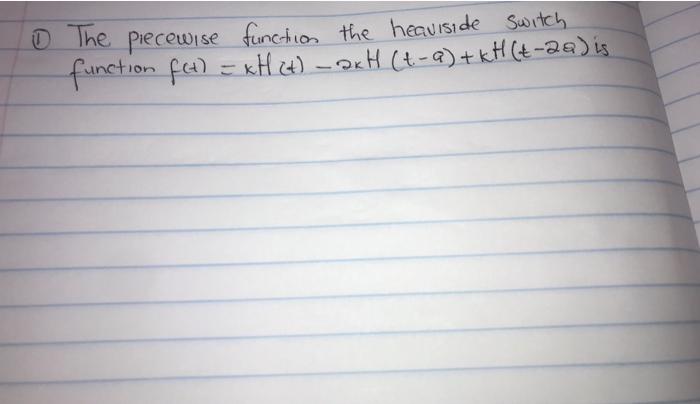 ① The piecewise function the heaviside switch
function f(t) = kH(t) - 2kH (t-a) + kH (t-2a) is